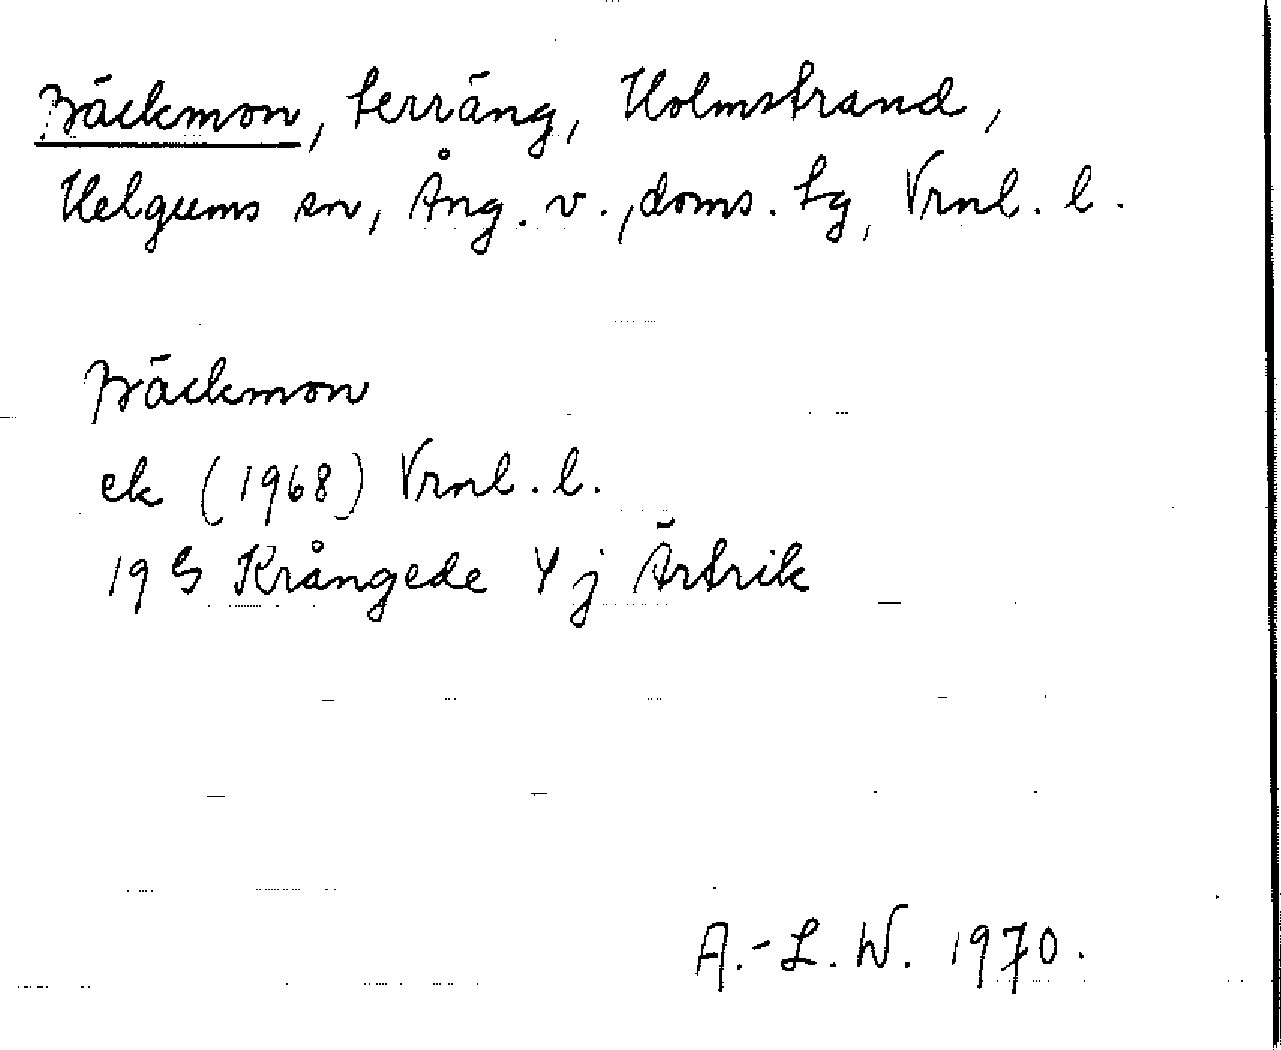 Bäckmon, terräng, Holmstrand,
Helgums sn, Ång. v., doms. tg, Vrnl. l.
Bäckmon
ek (1968) Vrnl. l.
19 G Krångede Y j Ärtrik
A.-L. W. 1970.